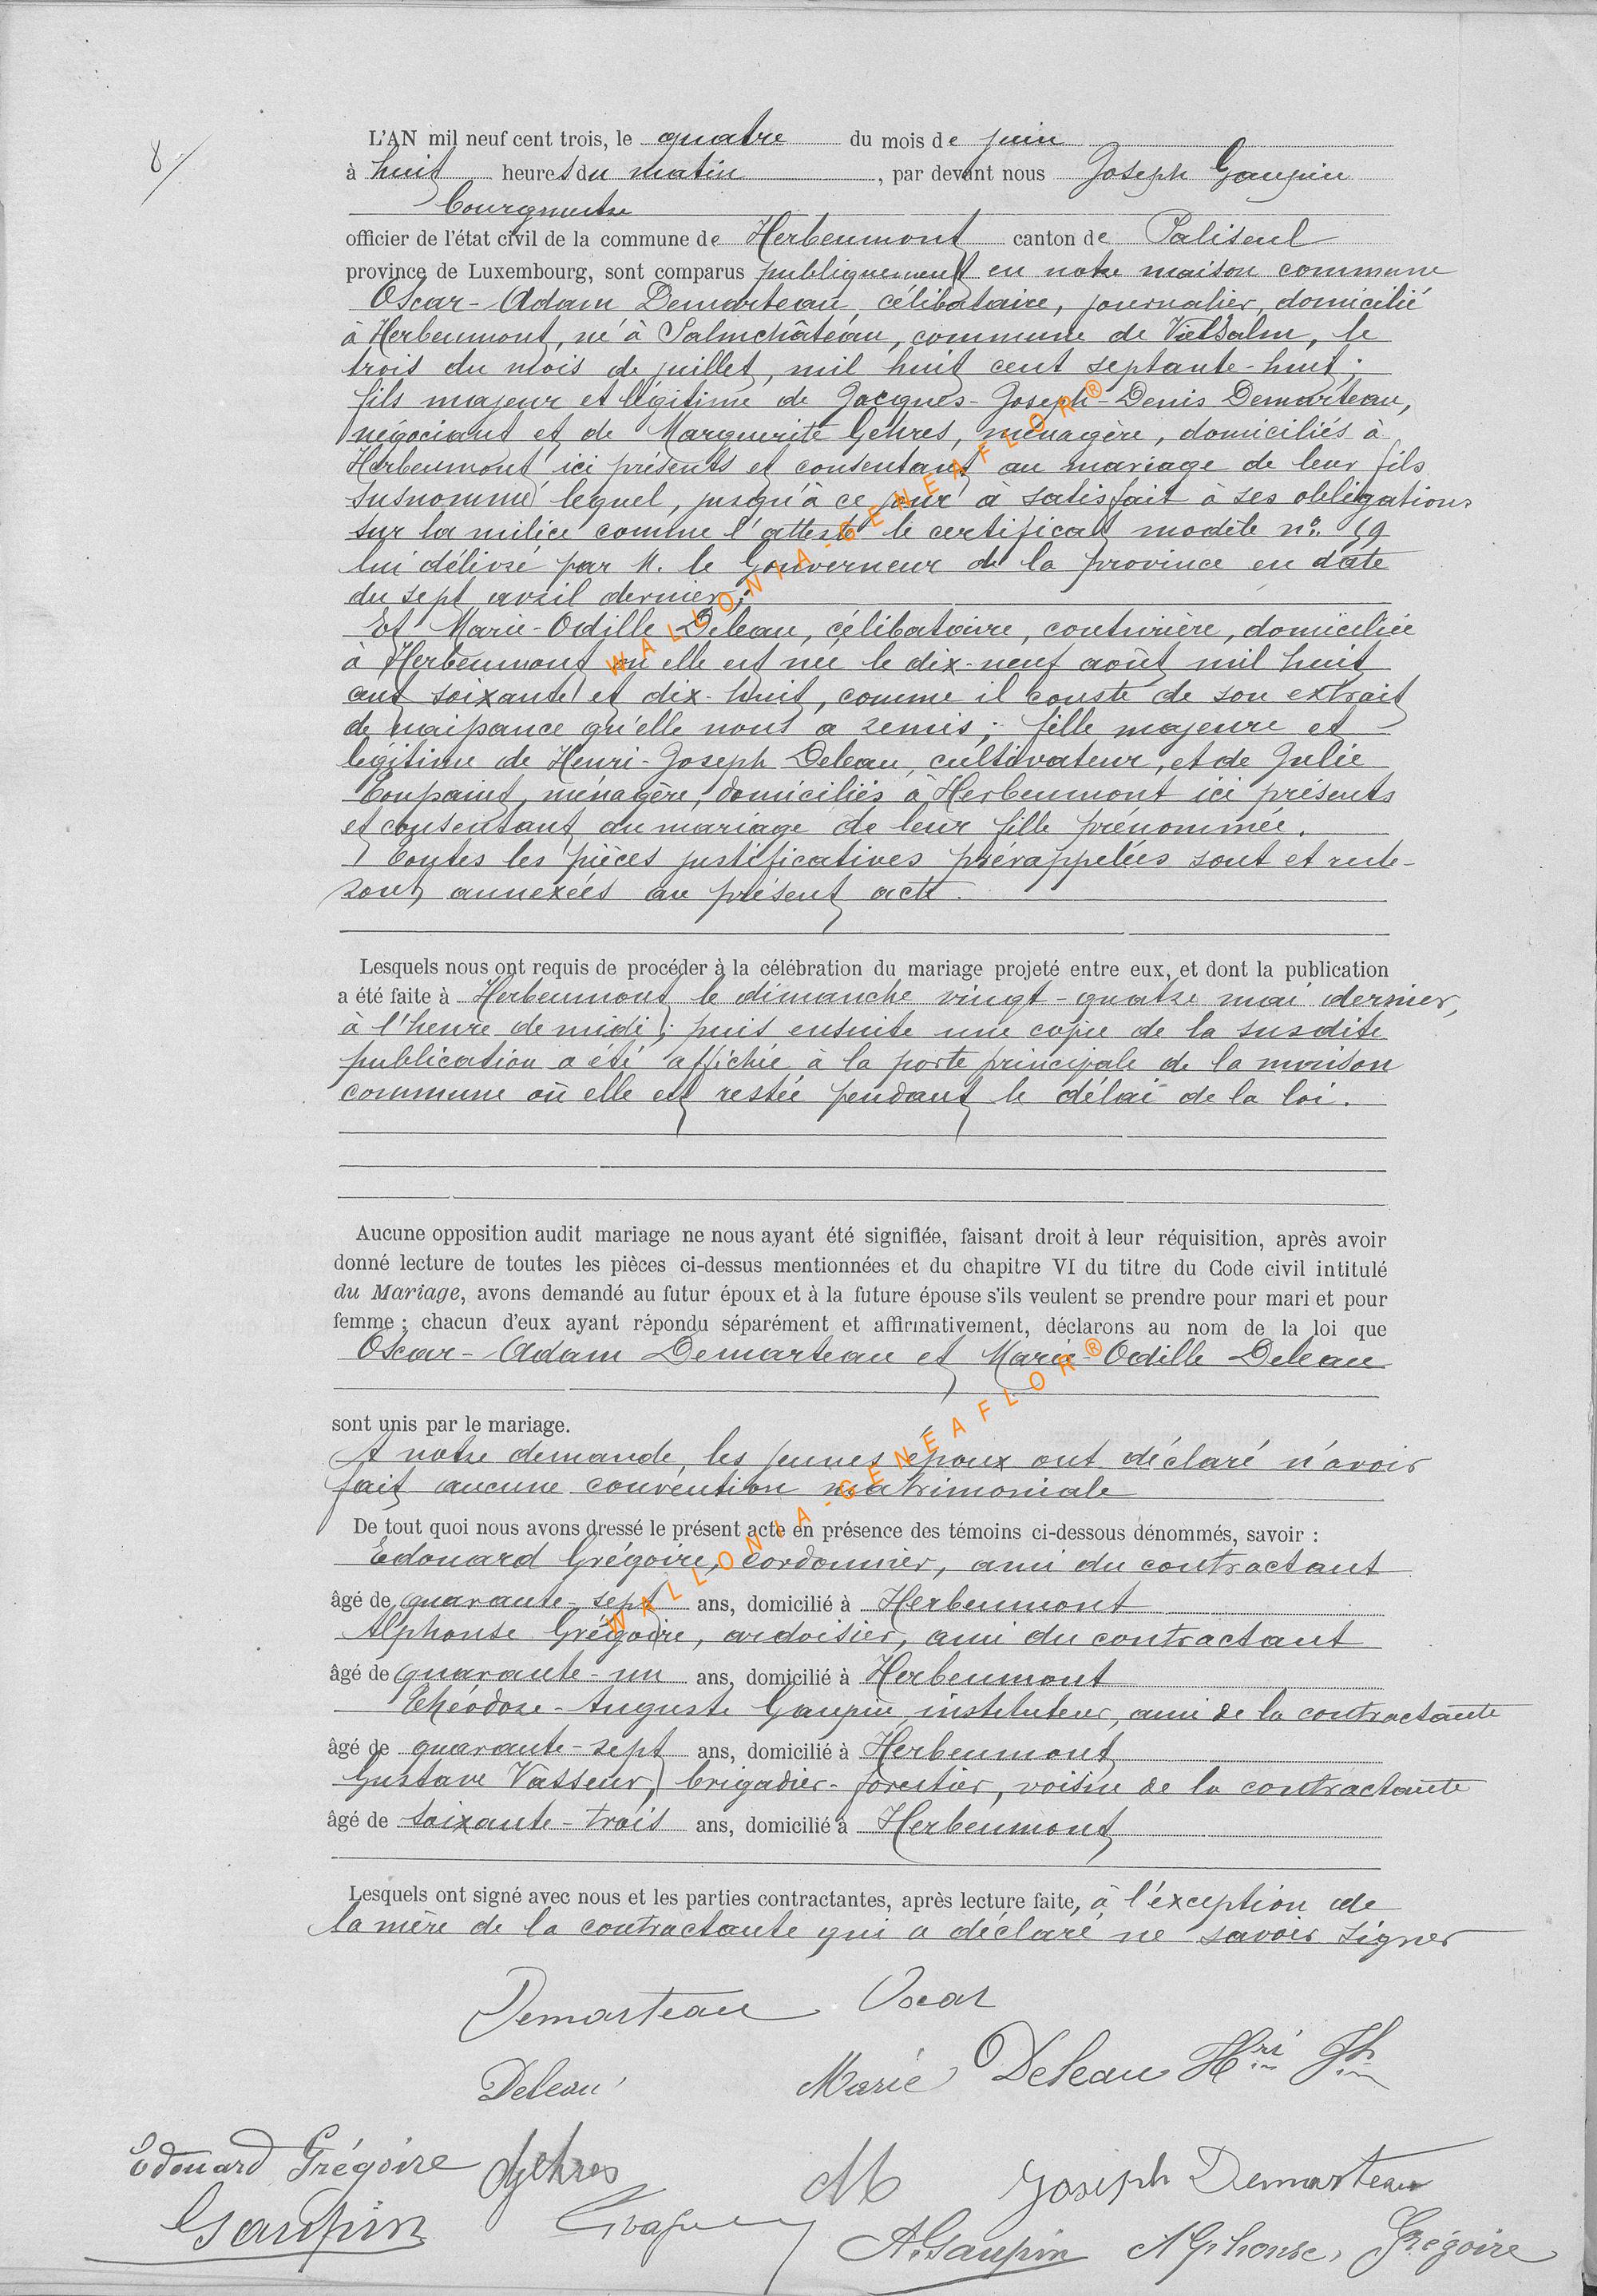 8/
L'AN mil neuf cent trois, le quatre du mois de juin
à huit heures du matin, par devant nous Joseph Gaupin
bourgmestre
officier de l'état civil de la commune de Herbeumont canton de Paliseul
province de Luxembourg, sont comparus publiquement en notre maison commune
Oscar-Adam Demarteau, célibataire, journalier, domicilié
à Herbeumont, né à Salmchâteau, commune de Vielsalm, le
trois du mois de juillet, mil huit cent septante-huit;
fils majeur et légitime de Jacques-Joseph-Denis Demarteau,
négociant et de Marguerite Gehres, ménagère, domiciliés à
Herbeumont ici présents et consentant au mariage de leur fils
susnommé lequel, jusqu'à ce jour a satisfait à ses obligations
sur la milice comme l'atteste le certificat modèle n° 19
lui délivré par M. le Gouverneur de la province en date
du sept avril dernier;
Et Marie-Odille Deleau, célibataire, couturière, domiciliée
à Herbeumont où elle est née le dix-neuf août mil huit
cent soixante et dix-huit, comme il conste de son extrait
de naissance qu'elle nous a remis; fille majeure et
légitime de Henri-Joseph Deleau, cultivateur, et de Julie
Toupaint, ménagère, domiciliés à Herbeumont ici présents
et consentant au mariage de leur fille prénommée.
Toutes les pièces justificatives prérappelées sont et reste-
ront annexées au présent acte.
Lesquels nous ont requis de procéder à la célébration du mariage projeté entre eux, et dont la publication
a été faite à Herbeumont le dimanche vingt-quatre mai dernier,
à l'heure de midi; puis ensuite une copie de la susdite
publication a été affichée à la porte principale de la maison
commune où elle est restée pendant le délai de la loi.
Aucune opposition audit mariage ne nous ayant été signifiée, faisant droit à leur réquisition, après avoir
donné lecture de toutes les pièces ci-dessus mentionnées et du chapitre VI du titre du Code civil intitulé
du Mariage, avons demandé au futur époux et à la future épouse s'ils veulent se prendre pour mari et pour
femme ; chacun d'eux ayant répondu séparément et affirmativement, déclarons au nom de la loi que
Oscar-Adam Demarteau et Marie-Odille Deleau
sont unis par le mariage.
A notre demande, les jeunes époux ont déclaré n'avoir
fait aucune convention matrimoniale
De tout quoi nous avons dressé le présent acte en présence des témoins ci-dessous dénommés, savoir :
Edouard Grégoire, cordonnier, ami du contractant
âgé de quarante-sept ans, domicilié à Herbeumont
Alphonse Grégoire, ardoisier, ami du contractant
âgé de quarante-un ans, domicilié à Herbeumont
Théodore-Auguste Gaupin, instituteur, ami de la contractante
âgé de quarante-sept ans, domicilié à Herbeumont
Gustave Vasseur, brigadier-forestier, voisin de la contractante
âgé de soixante-trois ans, domicilié à Herbeumont
Lesquels ont signé avec nous et les parties contractantes, après lecture faite, à l'exception de
la mère de la contractante qui a déclaré ne savoir signer
Demarteau Oscar
Deleau Marie Deleau Hri Jh
Edouard Grégoire Gehres M Joseph Demarteau
Gaupin A. Gaupin Alphonse Grégoire
WALLONIA-GENEAFLOR®
WALLONIA-GENEAFLOR®